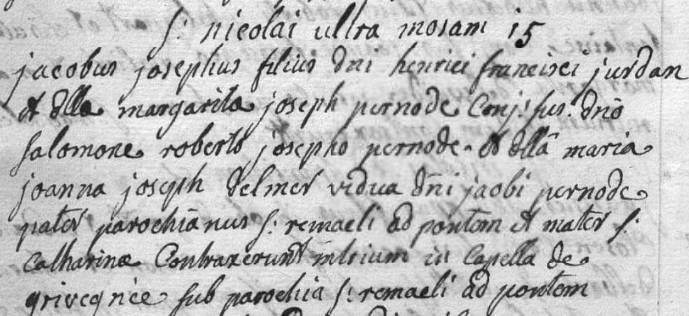 S: nicolai ultra mosam 15
jacobus josephus filius dni henrici francisci jurdan
et dlla margarita joseph pernode Conj: sus. dno
salomone roberto josepho pernode. et dlla maria
joanna joseph delmer vidua dni jaobi pernode
pater parochianus S: remacli ad pontem et mater S:
Catharinæ Contraxerunt mtrium in Capella de
grivegnée sub parochia S: remacli ad pontem